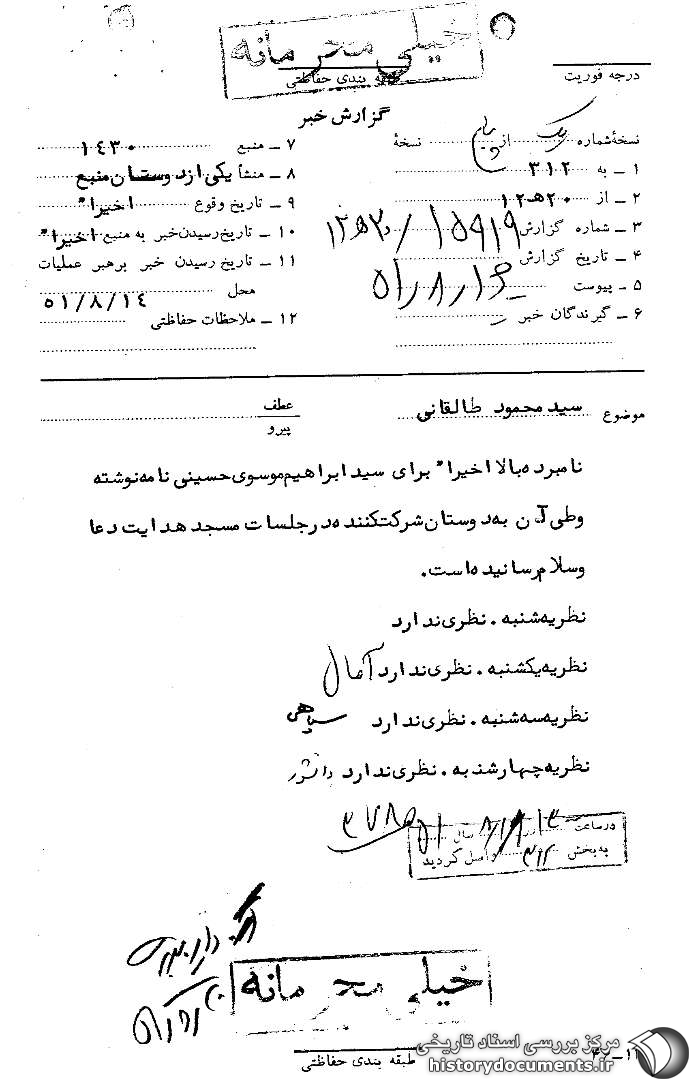 خیلی محرمانه
طبقه بندی حفاظتی
درجه فوریت
گزارش خبر
نسخهٔ شماره یک از نسخهٔ
۱ ـ به ۳۱۲
۲ ـ از ۲۰ ه‍ ۱۲
۳ ـ شماره گزارش ۱۵۹۱۹ / ۱۲ه‍۲۰
۴ ـ تاریخ گزارش
۵ ـ پیوست ۵۱/۸/۱۶
۶ ـ گیرندگان خبر
۷ ـ منبع ۱۴۳۰
۸ ـ منشأ یکی از دوستان منبع
۹ ـ تاریخ وقوع اخیرا"
۱۰ ـ تاریخ رسیدن خبر به منبع اخیرا"
۱۱ ـ تاریخ رسیدن خبر برهبر عملیات
محل ۵۱/۸/۱۴
۱۲ ـ ملاحظات حفاظتی
موضوع سید محمود طالقانی
عطف
پیرو
نامبرده بالا اخیرا" برای سید ابراهیم موسوی حسینی نامه نوشته
وطی آن به دوستان شرکت کننده در جلسات مسجد هدایت دعا
وسلام رسانیده است.
نظریه شنبه . نظری ندارد
نظریه یکشنبه . نظری ندارد آمال
نظریه سه شنبه . نظری ندارد سپاهی
نظریه چهارشنبه . نظری ندارد دانشور
در ساعت سال ۵۱
به بخش ۳۱۲ واصل گردید
خیلی محرمانه
طبقه بندی حفاظتی
مرکز بررسی اسناد تاریخی
historydocuments.ir